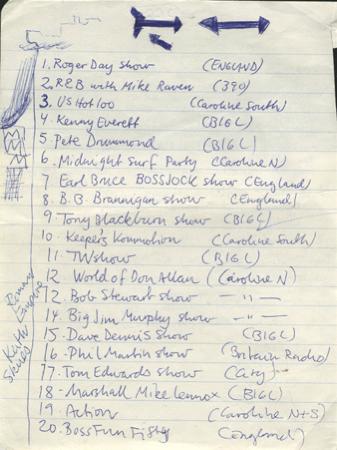 1. Roger Day show (ENGLAND)
2. R&B with Mike Raven (390)
3. US Hot 100 (Caroline South)
4 Kenny Everett (BIG L)
5 Pete Drummond (BIG L)
6. Midnight Surf Party (Caroline N)
7 Earl Bruce BOSSJOCK show (England)
8. B.B. Brannigan show (England)
9 Tony Blackburn show (BIG L)
10. Keeper's Kommotion (Caroline South)
11 TW show (BIG L)
12 World of Don Allan (Caroline N)
12. Bob Stewart show — " —
14. Big Jim Murphy show — " —
15. Dave Dennis show (BIG L)
16. Phil Martin show (Britain Radio)
17. Tom Edwards show (City)
18 - Marshall Mike Lennox (BIG L)
19. Action (Caroline N+S)
20. Boss Fun (England)
Keith Skues